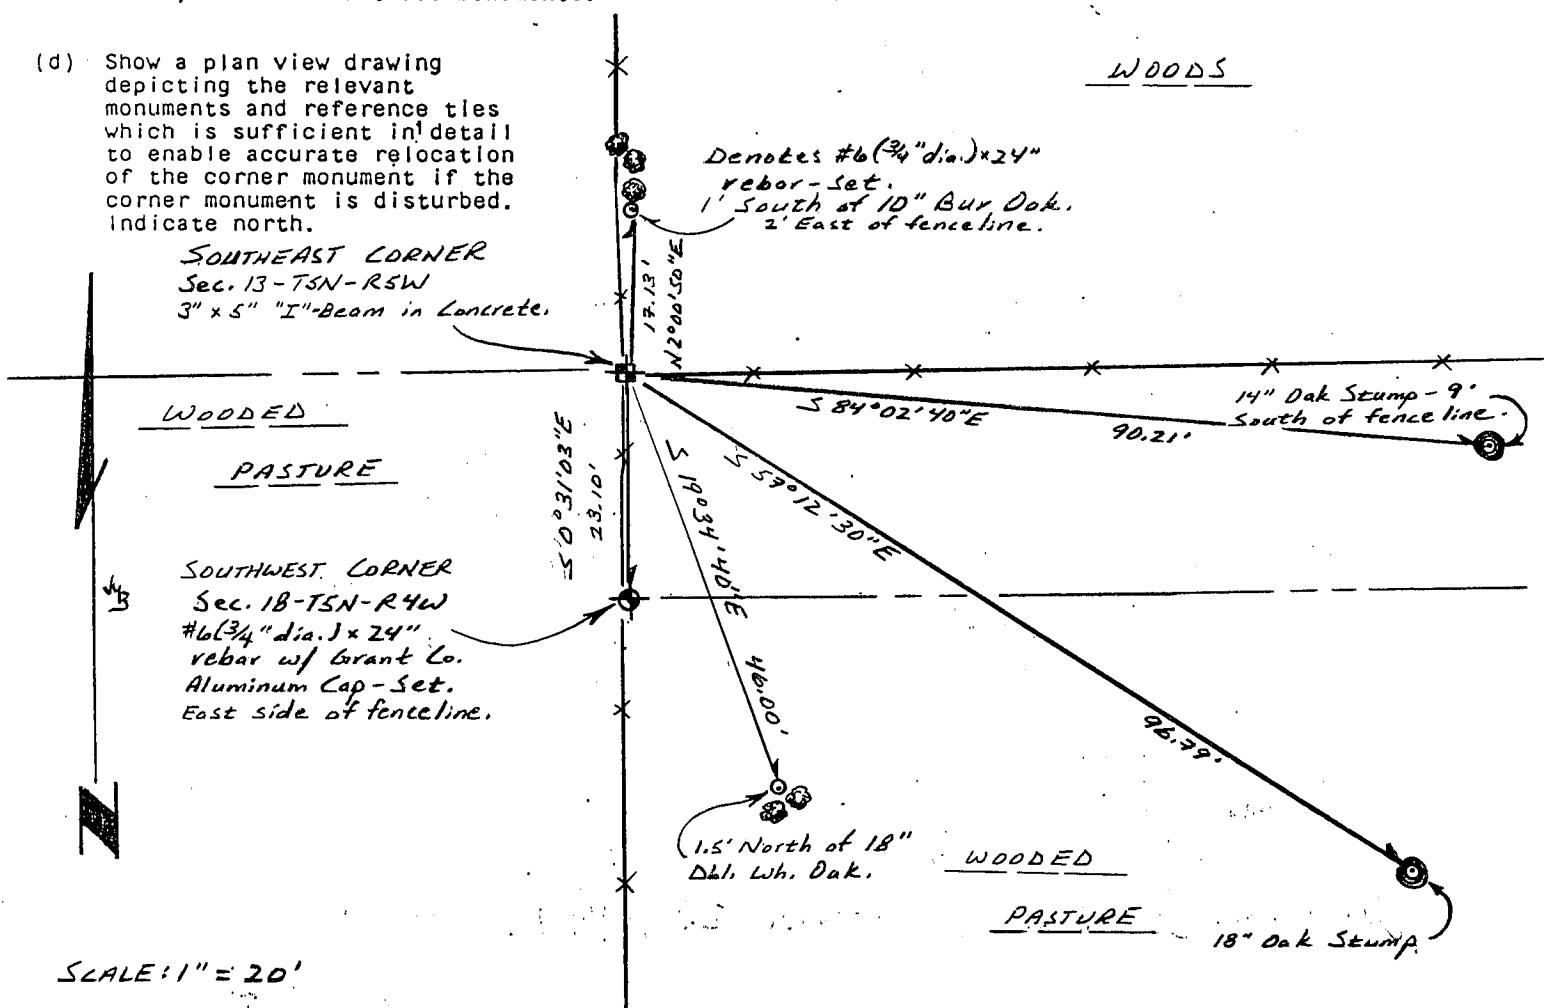 (d) Show a plan view drawing
depicting the relevant
monuments and reference ties
which is sufficient in detail
to enable accurate relocation
of the corner monument if the
corner monument is disturbed.
Indicate north.
WOODS
Denotes #6 (3/4" dia.) x 24"
rebar - set.
1' South of 10" Bur Oak.
2' East of fenceline.
SOUTHEAST CORNER
Sec. 13 - T5N - R5W
3" x 5" "I"-Beam in Concrete.
17.13'
N 2°00'50"E
WOODED
PASTURE
S 84°02'40"E
90.21'
14" Oak Stump - 9'
South of fenceline.
S 0°31'03"E
23.10'
S 19°34'40"E
46.00'
S 57°12'30"E
96.79'
SOUTHWEST CORNER
Sec. 18 - T5N - R4W
#6 (3/4" dia.) x 24"
rebar w/ Grant Co.
Aluminum Cap - Set.
East side of fenceline.
N
1.5' North of 18"
Dbl. Wh. Oak.
WOODED
PASTURE
18" Oak Stump.
SCALE: 1" = 20'